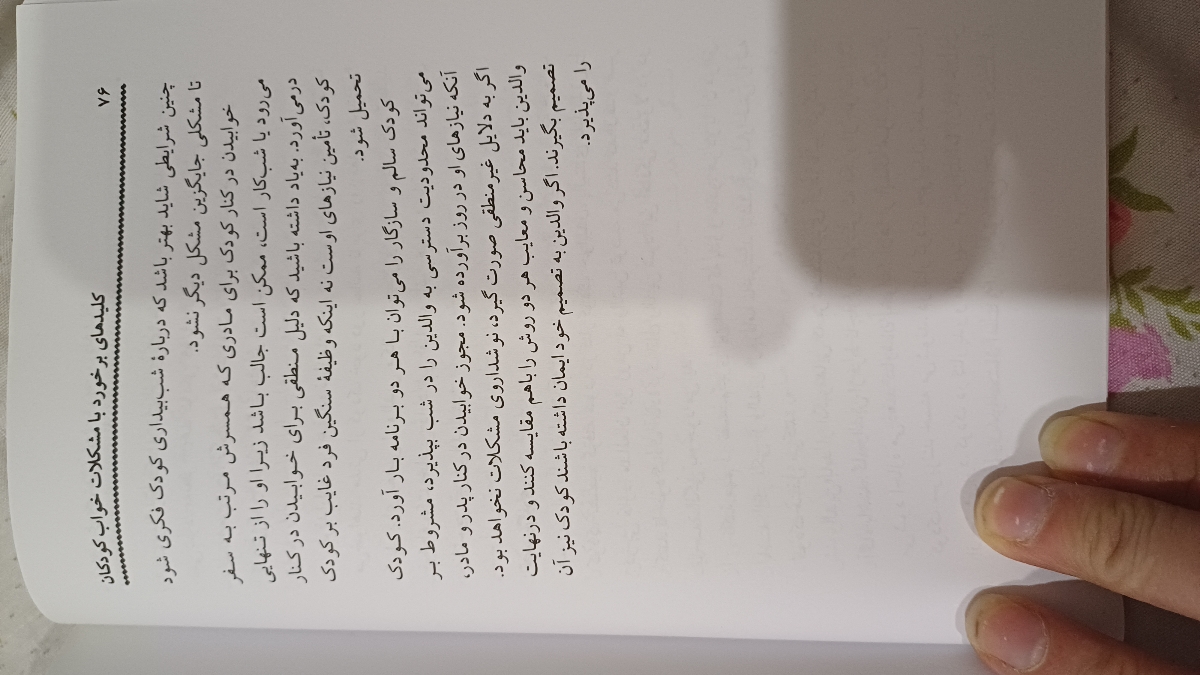 ۷۶ کلیدهای برخورد با مشکلات خواب کودکان
چنین شرایطی شاید بهتر باشد که دربارهٔ شب‌بیداری کودک فکری شود
تا مشکلی جایگزین مشکل دیگر نشود.
خوابیدن در کنار کودک برای مادری که همسرش مرتب به سفر
می‌رود یا شب‌کار است، ممکن است جالب باشد زیرا او را از تنهایی
درمی‌آورد. به‌یاد داشته باشید که دلیل منطقی برای خوابیدن در کنار
کودک، تأمین نیازهای اوست نه اینکه وظیفهٔ سنگین فرد غایب بر کودک
تحمیل شود.
کودک سالم و سازگار را می‌توان با هر دو برنامه بار آورد. کودک
می‌تواند محدودیت دسترسی به والدین را در شب بپذیرد، مشروط بر
آنکه نیازهای او در روز برآورده شود. مجوز خوابیدن در کنار پدر و مادر،
اگر به دلایل غیرمنطقی صورت گیرد، نوشداروی مشکلات نخواهد بود.
والدین باید محاسن و معایب هر دو روش را باهم مقایسه کنند و درنهایت
تصمیم بگیرند. اگر والدین به تصمیم خود ایمان داشته باشند کودک نیز آن
را می‌پذیرد.